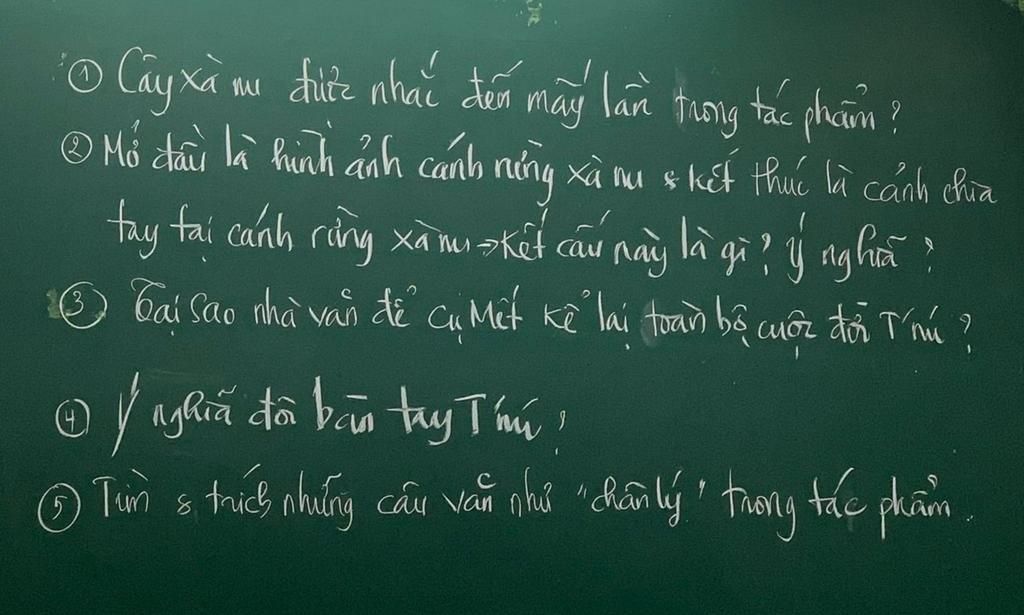 ① Cây xà nu được nhắc đến mấy lần trong tác phẩm?
② Mở đầu là hình ảnh cánh rừng xà nu & kết thúc là cảnh chia
tay tại cánh rừng xà nu → kết cấu này là gì? Ý nghĩa?
③ Tại sao nhà văn để cụ Mết kể lại toàn bộ cuộc đời T'nú?
④ Ý nghĩa đôi bàn tay T'nú?
⑤ Tìm & trích những câu văn như "chân lý" trong tác phẩm.